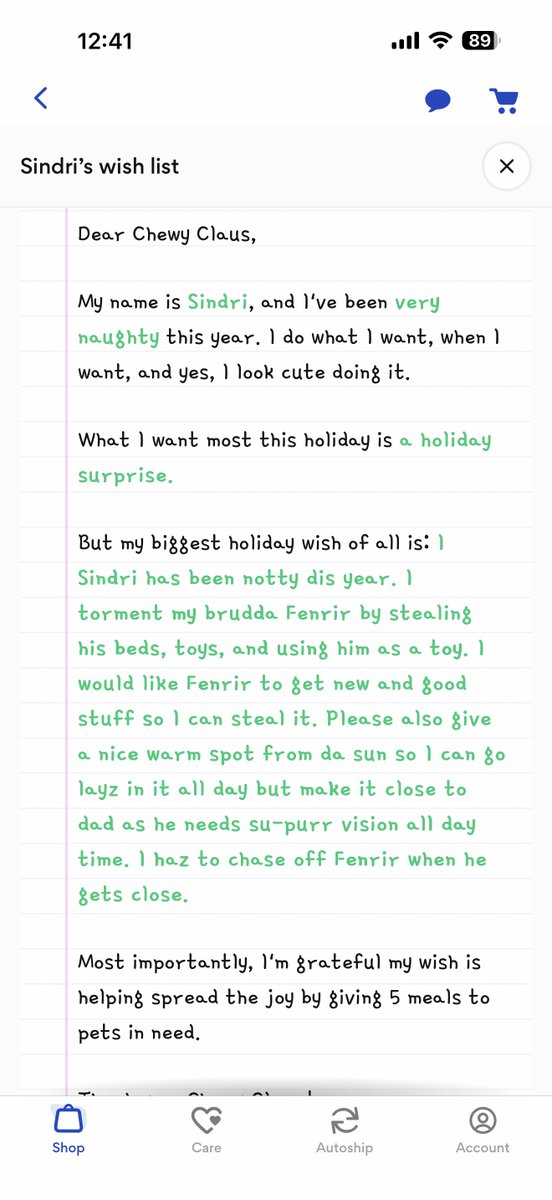 12:41
89
Sindri's wish list
Dear Chewy Claus,
My name is Sindri, and I've been very
naughty this year. I do what I want, when I
want, and yes, I look cute doing it.
What I want most this holiday is a holiday
surprise.
But my biggest holiday wish of all is: I
Sindri has been notty dis year. I
torment my brudda Fenrir by stealing
his beds, toys, and using him as a toy. I
would like Fenrir to get new and good
stuff so I can steal it. Please also give
a nice warm spot from da sun so I can go
layz in it all day but make it close to
dad as he needs su-purr vision all day
time. I haz to chase off Fenrir when he
gets close.
Most importantly, I'm grateful my wish is
helping spread the joy by giving 5 meals to
pets in need.
Shop Care Autoship Account